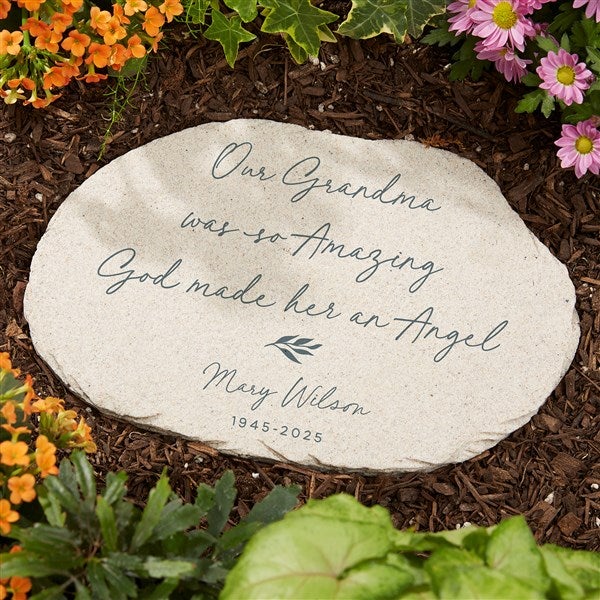 Our Grandma
was so Amazing
God made her an Angel
Mary Wilson
1945-2025